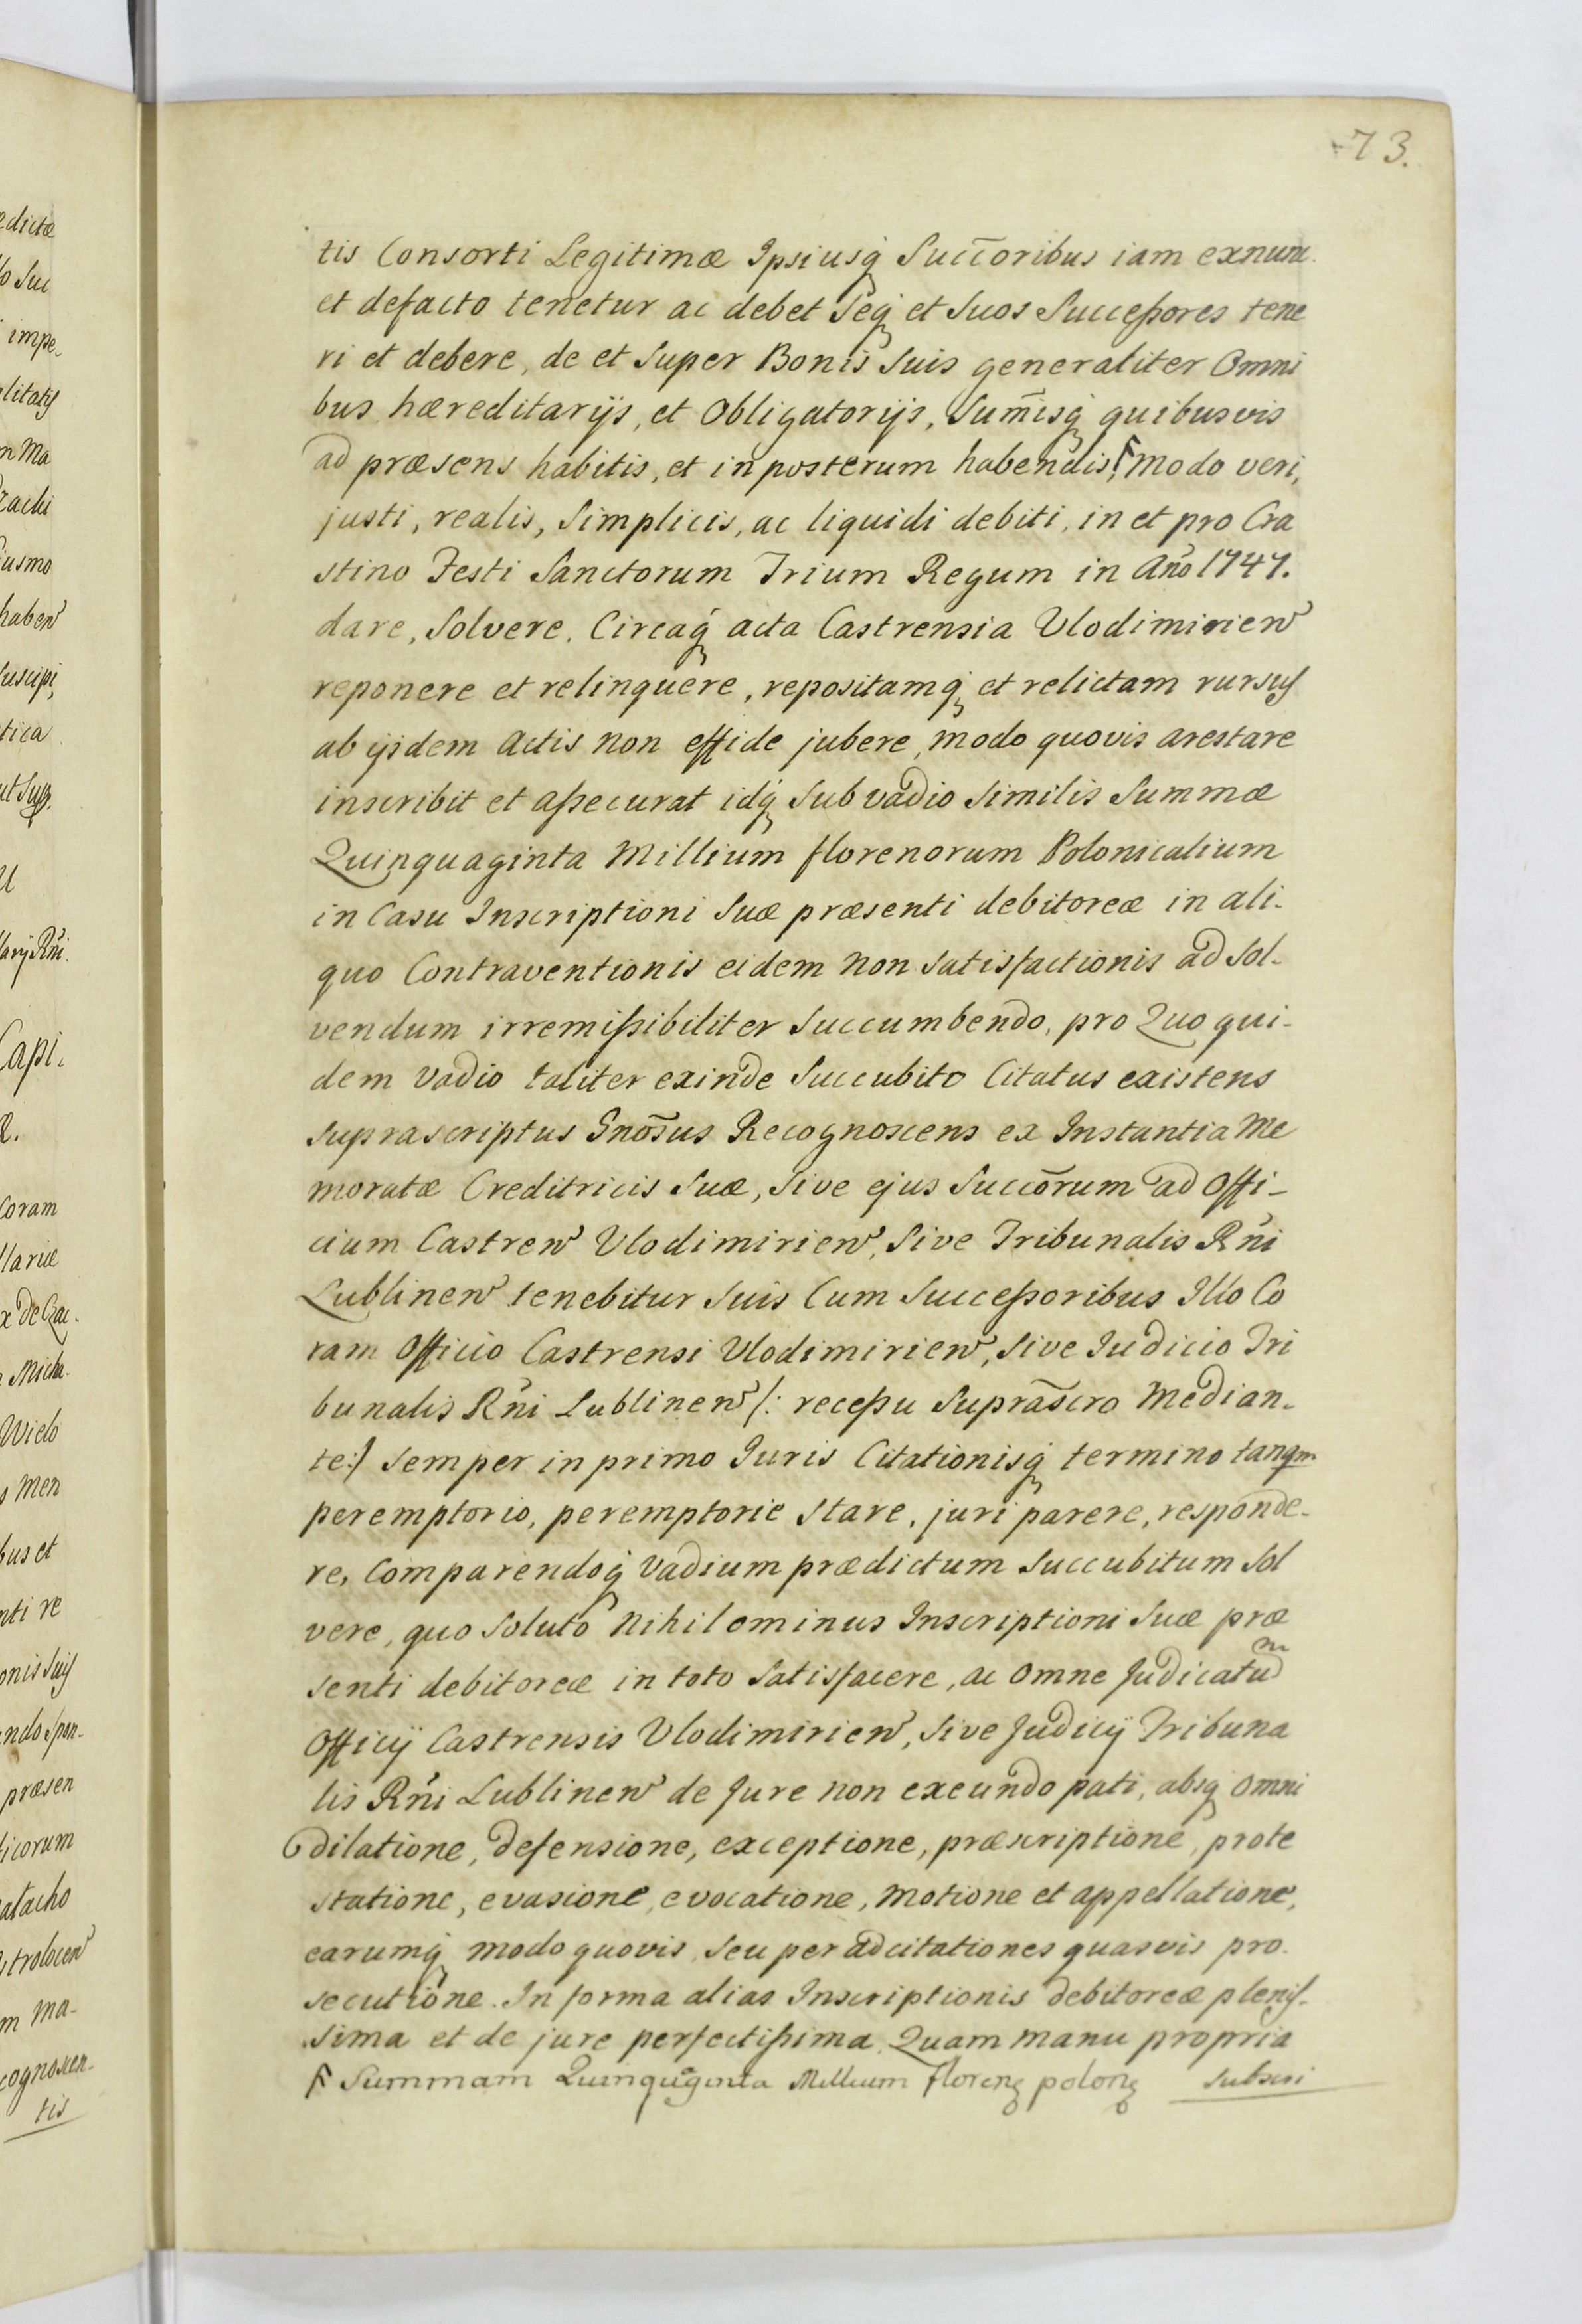 73.
tis Consorti Legitimæ Ipsiusq̃ Succ̄oribus iam exnunc
et defacto tenetur ac debet Seq̃ et Suos Succeßores tene
ri et debere, de et Super Bonis Suis generaliter Omni
bus hæreditarijs, et Obligatorijs, Sum̄isq̃ quibusvis
ad præsens habitis, et in posterum habendis, ꟻ modo veri,
justi, realis, Simplicis, ac liquidi debiti, in et pro Cra
stino Festi Sanctorum Trium Regum in Año 1747.
dare, Solvere, Circaq̃ acta Castrensia Vlodimirien̄
reponere et relinquere, repositamq̃ et relictam rursus
ab ijsdem Actis non effide jubere, modo quovis arestare
inscribit et aßecurat idq̃ Sub vadio Similis Summæ
Quinquaginta Millium florenorum Polonicalium
in Casu Inscriptioni Suæ præsenti debitoreæ in ali-
quo Contraventionis eidem non Satisfactionis ad Sol-
vendum irremißibiliter Succumbendo, pro Quo qui-
dem vadio taliter exinde Succubito Citatus existens
Suprascriptus Gnōsus Recognoscens ex Instantia Me
moratæ Creditricis Suæ, Sive ejus Succōrum ad Offi-
cium Castren̄ Vlodimirien̄, Sive Tribunalis Rñi
Lublinen̄ tenebitur Suis Cum Succeßoribus Illo Co
ram Officio Castrensi Vlodimirien̄, Sive Iudicio Tri
bunalis Rñi Lublinen̄ /: receßu Suprāscro Median-
te:/ Semper in primo Iuris Citationisq̃ termino tanqm
peremptorio, peremptorie Stare, juri parere, responde-
re, Comparendoq̃ Vadium prædictum Succubitum Sol
vere, quo Soluto Nihilominus Inscriptioni Suæ præ
senti debitoreæ in toto Satisfacere, ac Omne Judicatum
Officij Castrensis Vlodimirien̄, Sive Judicij Tribuna
lis Rñi Lublinen̄ de Jure non exeundo pati, absq̃ Omni
dilatione, defensione, exceptione, præscriptione, prote
statione, evasione, evocatione, Motione et appellatione,
earumq̃ modo quovis, Seu per adcitationes quasvis pro-
secutione. In forma alias Inscriptionis debitoreæ plenis-
sima et de jure perfectißima. Quam manu propria
ꟻ Summam Quinquaginta Millium floren̄ polon̄ Subscri